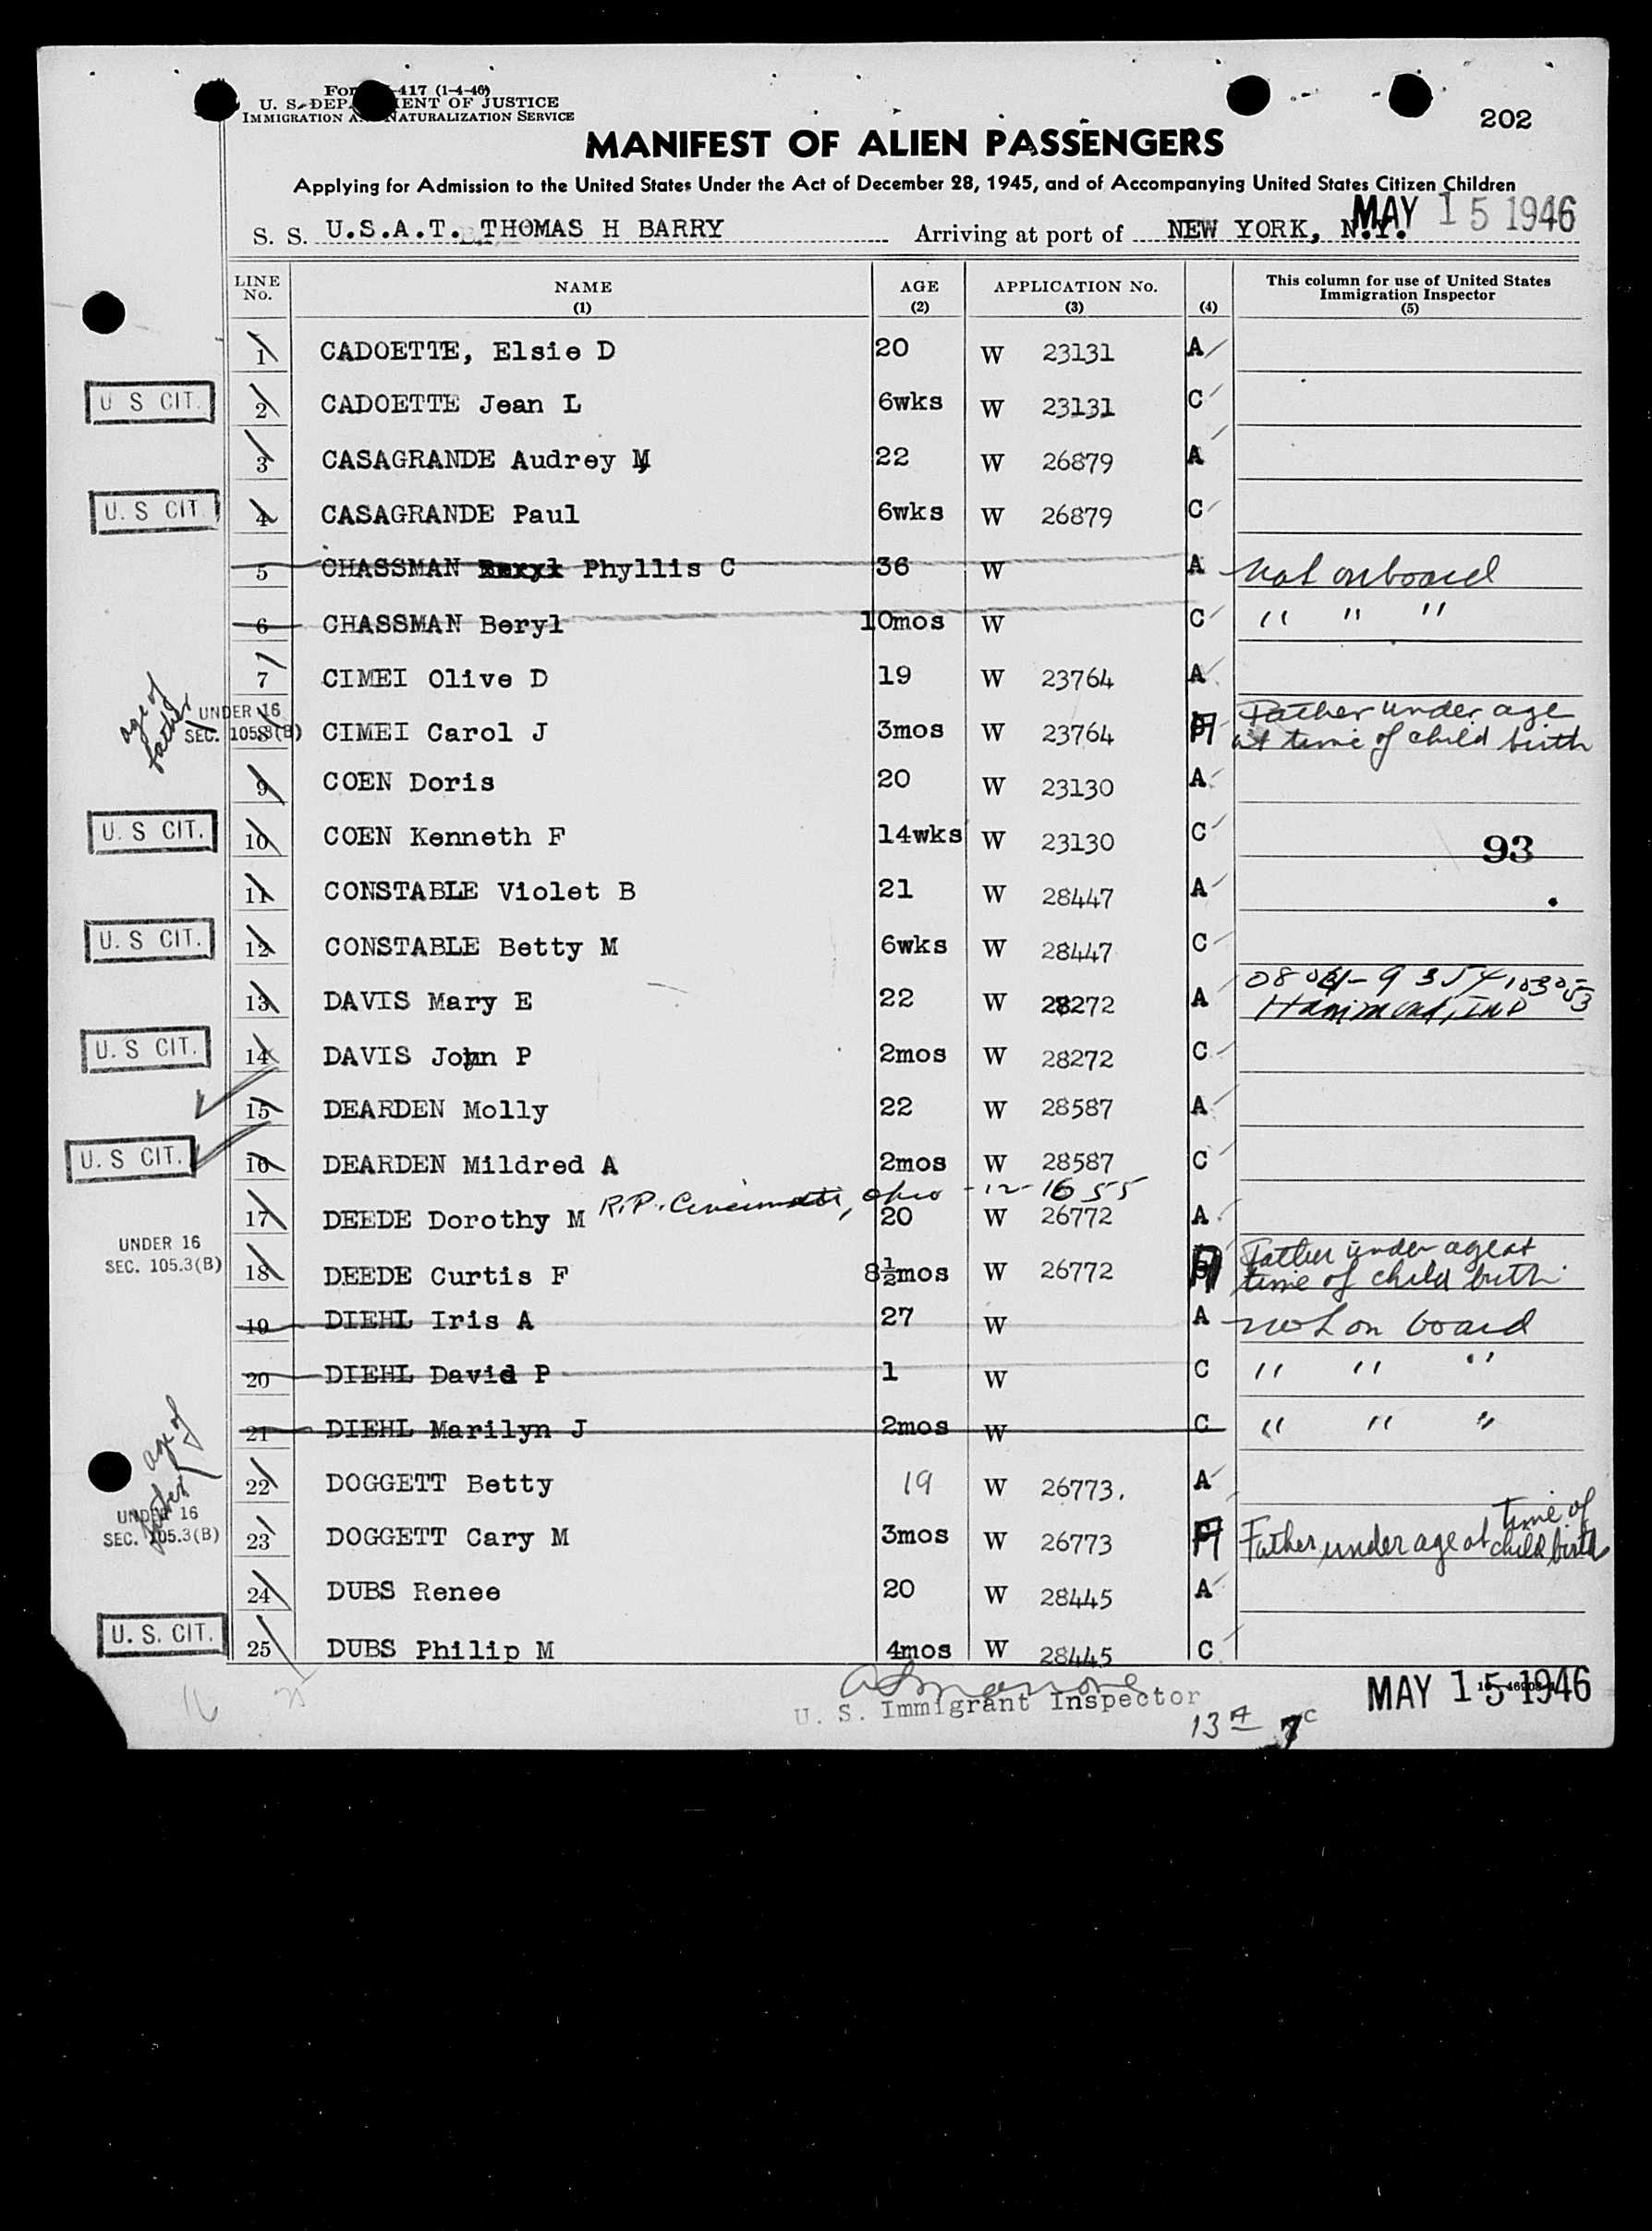 For 417 (1-4-46)
U. S. DEP ENT OF JUSTICE
IMMIGRATION A NATURALIZATION SERVICE
202
MANIFEST OF ALIEN PASSENGERS
Applying for Admission to the United States Under the Act of December 28, 1945, and of Accompanying United States Citizen Children
MAY 15 1946
S. S. U.S.A.T. THOMAS H BARRY Arriving at port of NEW YORK, N.Y.
LINE No. NAME (1) AGE (2) APPLICATION No. (3) (4) This column for use of United States Immigration Inspector (5)
1 CADOETTE, Elsie D 20 W 23131 A
U S CIT. 2 CADOETTE Jean L 6wks W 23131 C
3 CASAGRANDE Audrey M 22 W 26879 A
U. S CIT 4 CASAGRANDE Paul 6wks W 26879 C
5 CHASSMAN Phyllis C 36 W A Not onboard
6 CHASSMAN Beryl 10mos W C " " "
7 CIMEI Olive D 19 W 23764 A
age of father UNDER 16 SEC. 105.3(B) 8 CIMEI Carol J 3mos W 23764 A Father under age at time of child birth
9 COEN Doris 20 W 23130 A
U. S CIT. 10 COEN Kenneth F 14wks W 23130 C
93
11 CONSTABLE Violet B 21 W 28447 A
U. S CIT. 12 CONSTABLE Betty M 6wks W 28447 C
13 DAVIS Mary E 22 W 28272 A Hammond, IND
U. S CIT. 14 DAVIS John P 2mos W 28272 C
15 DEARDEN Molly 22 W 28587 A
U. S CIT. 16 DEARDEN Mildred A 2mos W 28587 C
R.P. Cincinnati, Ohio -12-16 55
17 DEEDE Dorothy M 20 W 26772 A
UNDER 16 SEC. 105.3(B) 18 DEEDE Curtis F 8½mos W 26772 A Father under age at time of child birth
19 DIEHL Iris A 27 W A not on board
20 DIEHL David P 1 W C " " "
21 DIEHL Marilyn J 2mos W C " " "
22 DOGGETT Betty 19 W 26773. A
age of father UNDER 16 SEC. 105.3(B) 23 DOGGETT Cary M 3mos W 26773 A Father under age at time of child birth
24 DUBS Renee 20 W 28445 A
U. S. CIT. 25 DUBS Philip M 4mos W 28445 C
U. S. Immigrant Inspector
MAY 15 1946
13 A 7 C